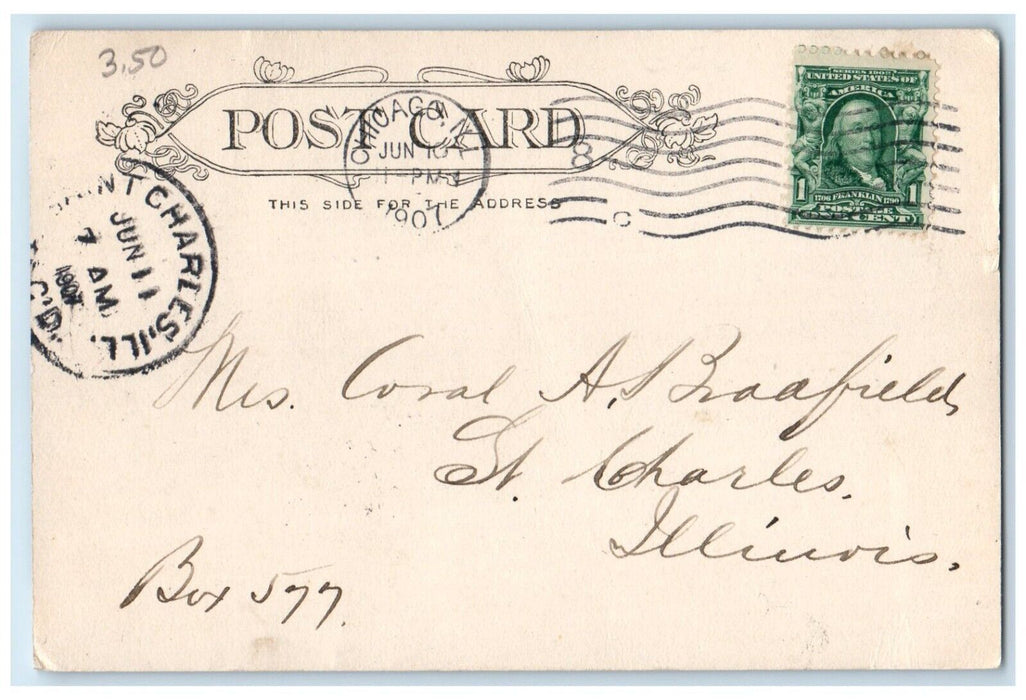 3.50
POST CARD
THIS SIDE FOR THE ADDRESS
CHICAGO, ILL.
JUN 10
11-PM
1907
8
C
SERIES 1902
UNITED STATES OF
AMERICA
1 1
1706 FRANKLIN 1790
POSTAGE
ONE CENT
SAINT CHARLES, ILL.
JUN 11
7 AM
1907
REC'D.
Mrs. Coral A. Bradfield,
St. Charles,
Illinois.
Box 577.